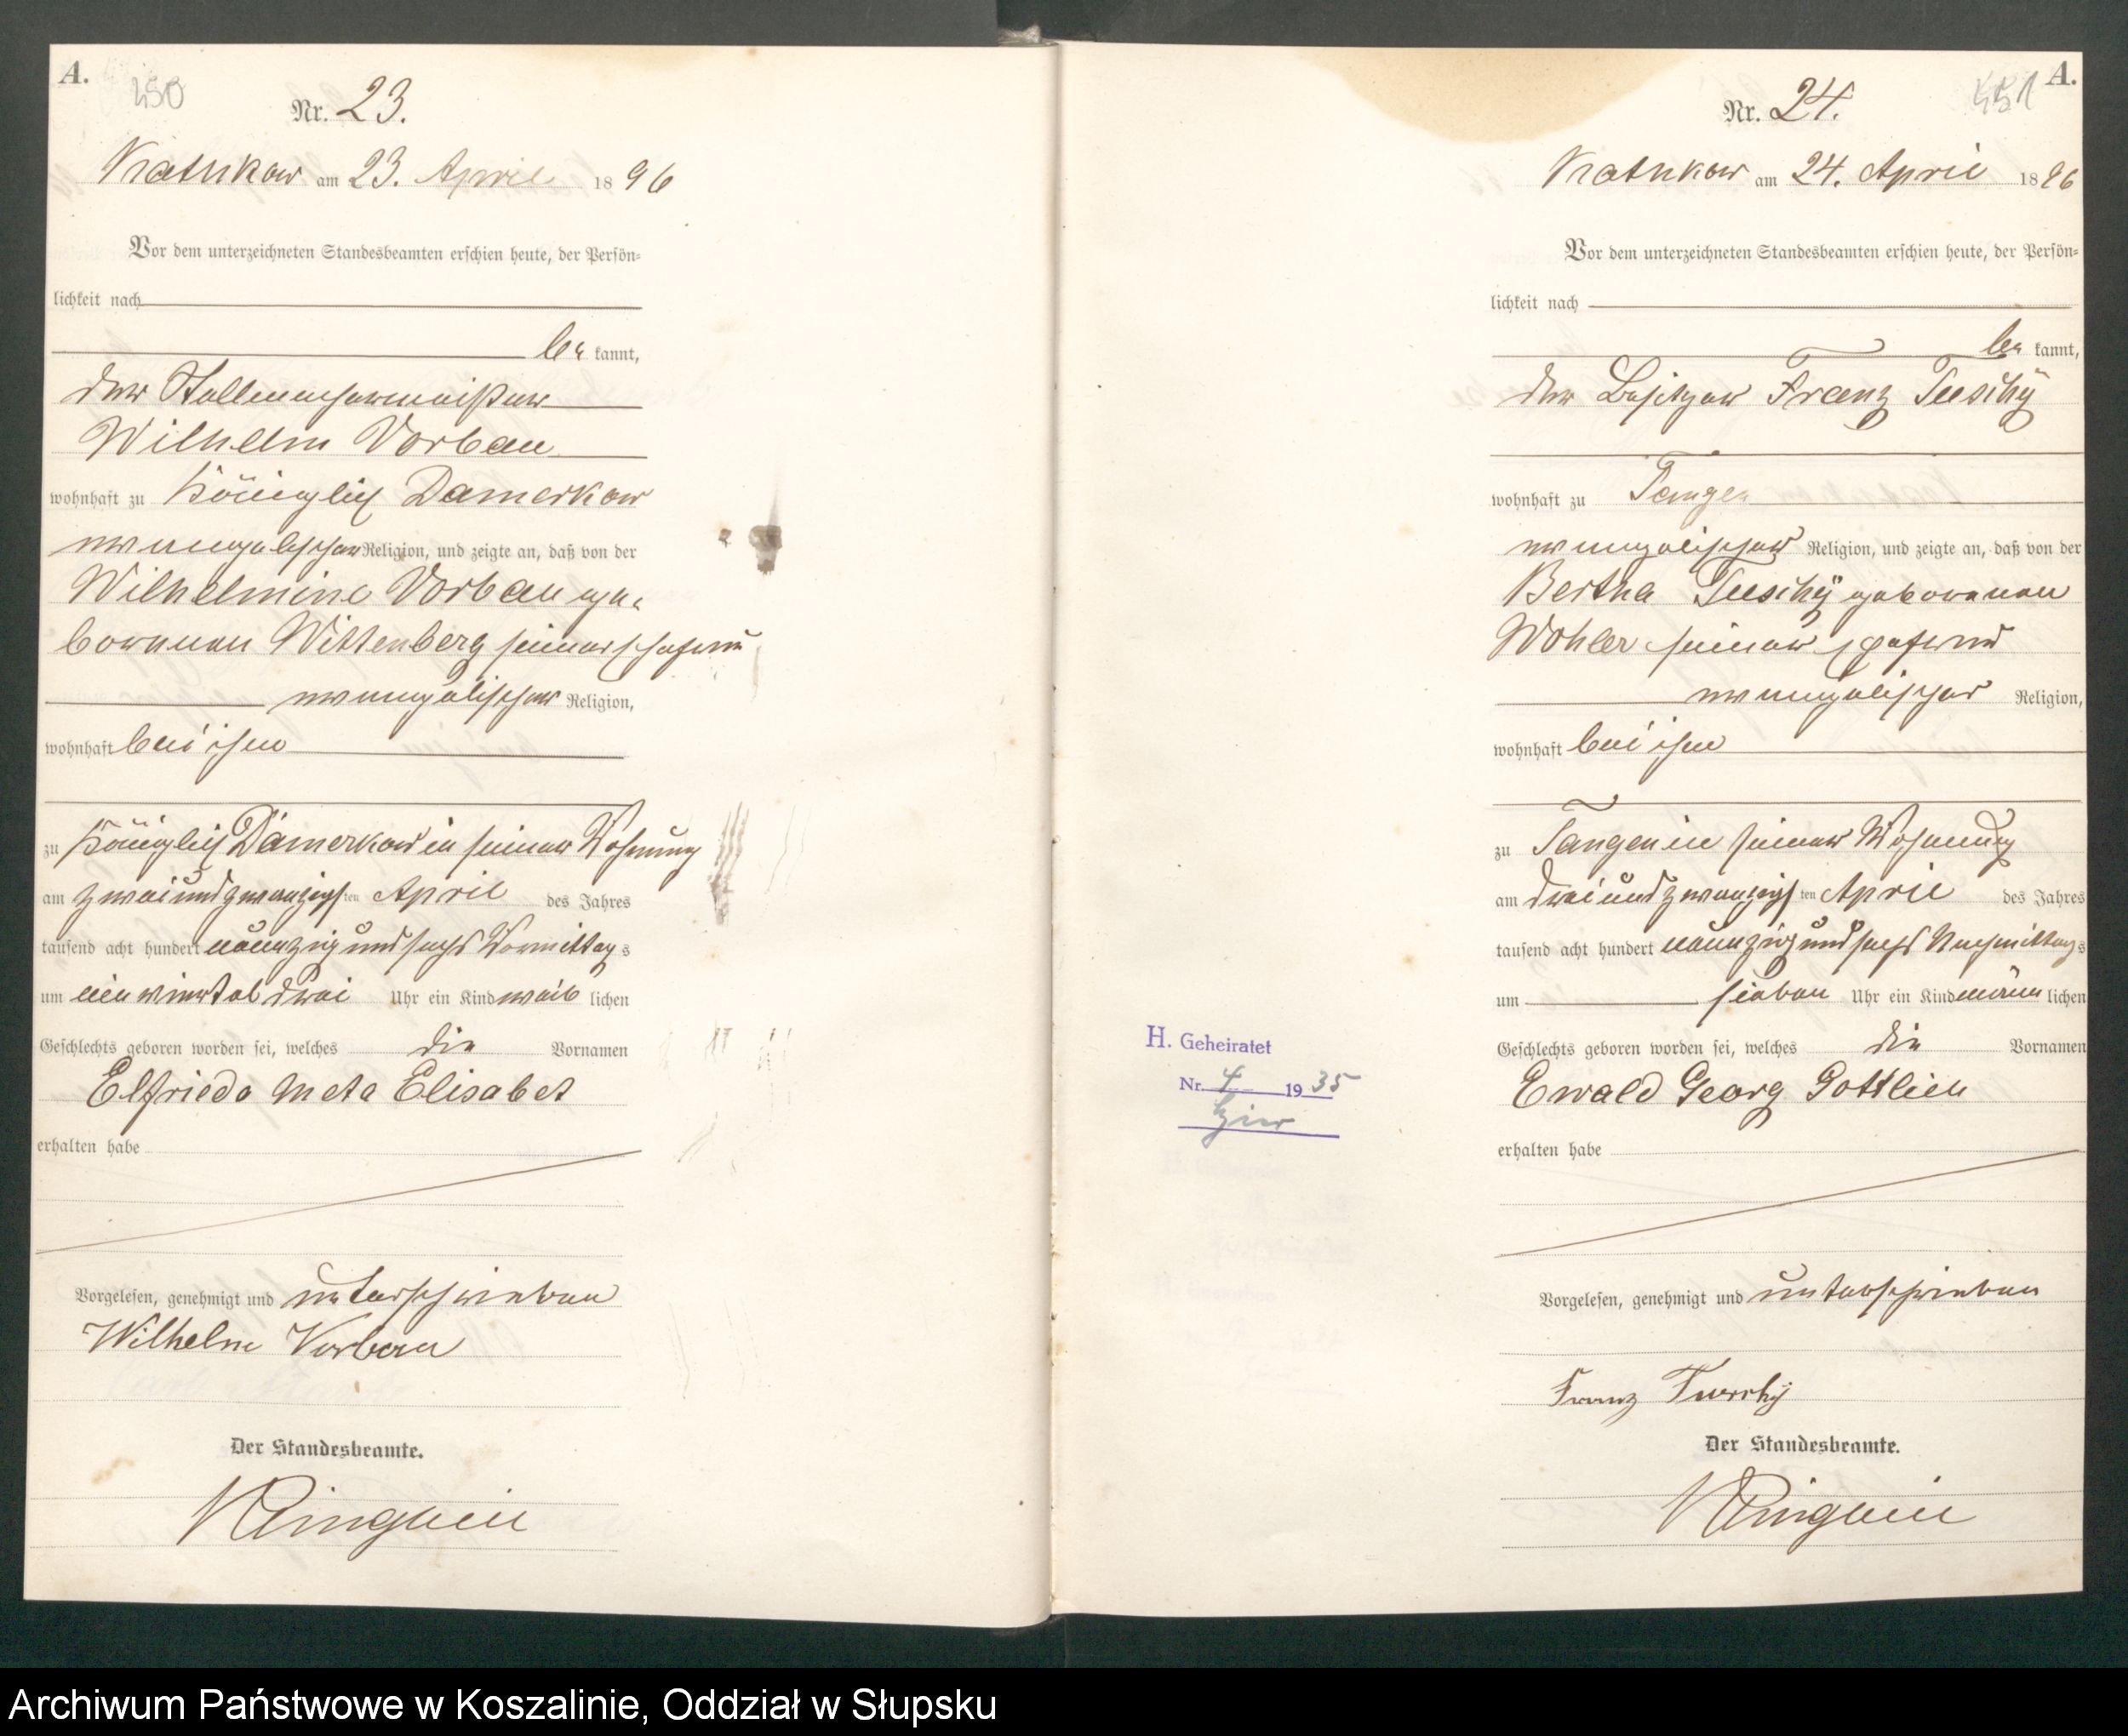 A.
450
Nr. 23.
Kathkow am 23. April 1896
Vor dem unterzeichneten Standesbeamten erschien heute, der Persön=
lichkeit nach
be kannt,
der Stellmachermeister
Wilhelm Vorbau
wohnhaft zu Königlich Damerkow
evangelischer Religion, und zeigte an, daß von der
Wilhelmine Vorbau ge=
borenen Wittenberg seiner Ehefrau
evangelischer Religion,
wohnhaft bei ihm
zu Königlich Damerkow in seiner Wohnung
am zweiundzwanzigsten April des Jahres
tausend acht hundert neunzig und sechs Vormittags
um ein viertel drei Uhr ein Kind weib lichen
Geschlechts geboren worden sei, welches die Vornamen
Elfriede Meta Elisabet
erhalten habe
Vorgelesen, genehmigt und unterschrieben
Wilhelm Vorbau
Der Standesbeamte.
A.
451
Nr. 24.
Kathkow am 24. April 1896
Vor dem unterzeichneten Standesbeamten erschien heute, der Persön=
lichkeit nach
be kannt,
der Besitzer Franz Tuschÿ
wohnhaft zu Tangen
evangelischer Religion, und zeigte an, daß von der
Bertha Tuschÿ geborenen
Wohler seiner Ehefrau
evangelischer Religion,
wohnhaft bei ihm
zu Tangen in seiner Wohnung
am dreiundzwanzigsten April des Jahres
tausend acht hundert neunzig und sechs Nachmittags
um sieben Uhr ein Kind männ lichen
Geschlechts geboren worden sei, welches die Vornamen
Ewald Georg Gottlieb
erhalten habe
Vorgelesen, genehmigt und unterschrieben
Franz Tuschÿ
Der Standesbeamte.
H. Geheiratet
Nr. 4 1935
Archiwum Państwowe w Koszalinie, Oddział w Słupsku